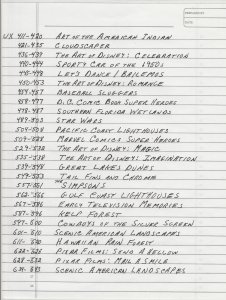 PREPARED BY
DATE
UX 411-420 ART OF THE AMERICAN INDIAN
421-435 CLOUDSCAPES
436-439 THE ART OF DISNEY: CELEBRATION
440-444 SPORTY CAR OF THE 1950S
445-448 LET'S DANCE / BAILEMOS
450-453 THE ART OF DISNEY: ROMANCE
454-457 BASEBALL SLUGGERS
458-477 D.C. COMIC BOOK SUPER HEROES
478-487 SOUTHERN FLORIDA WETLANDS
489-503 STAR WARS
504-508 PACIFIC COAST LIGHTHOUSES
509-528 MARVEL COMICS SUPER HEROES
529-532 THE ART OF DISNEY: MAGIC
535-538 THE ART OF DISNEY: IMAGINATION
539-548 GREAT LAKES DUNES
549-553 TAIL FINS AND CHROME
557-561 SIMPSONS
562-566 GULF COAST LIGHTHOUSES
567-586 EARLY TELEVISION MEMORIES
587-596 KELP FOREST
597-600 COWBOYS OF THE SILVER SCREEN
SCENIC AMERICAN LANDSCAPES
HAWAIIAN RAIN FOREST
PIXAR FILMS: SEND A HELLOW
PIXAR FILMS: MAIL A SMILE
SCENIC AMERICAN LANDSCAPES